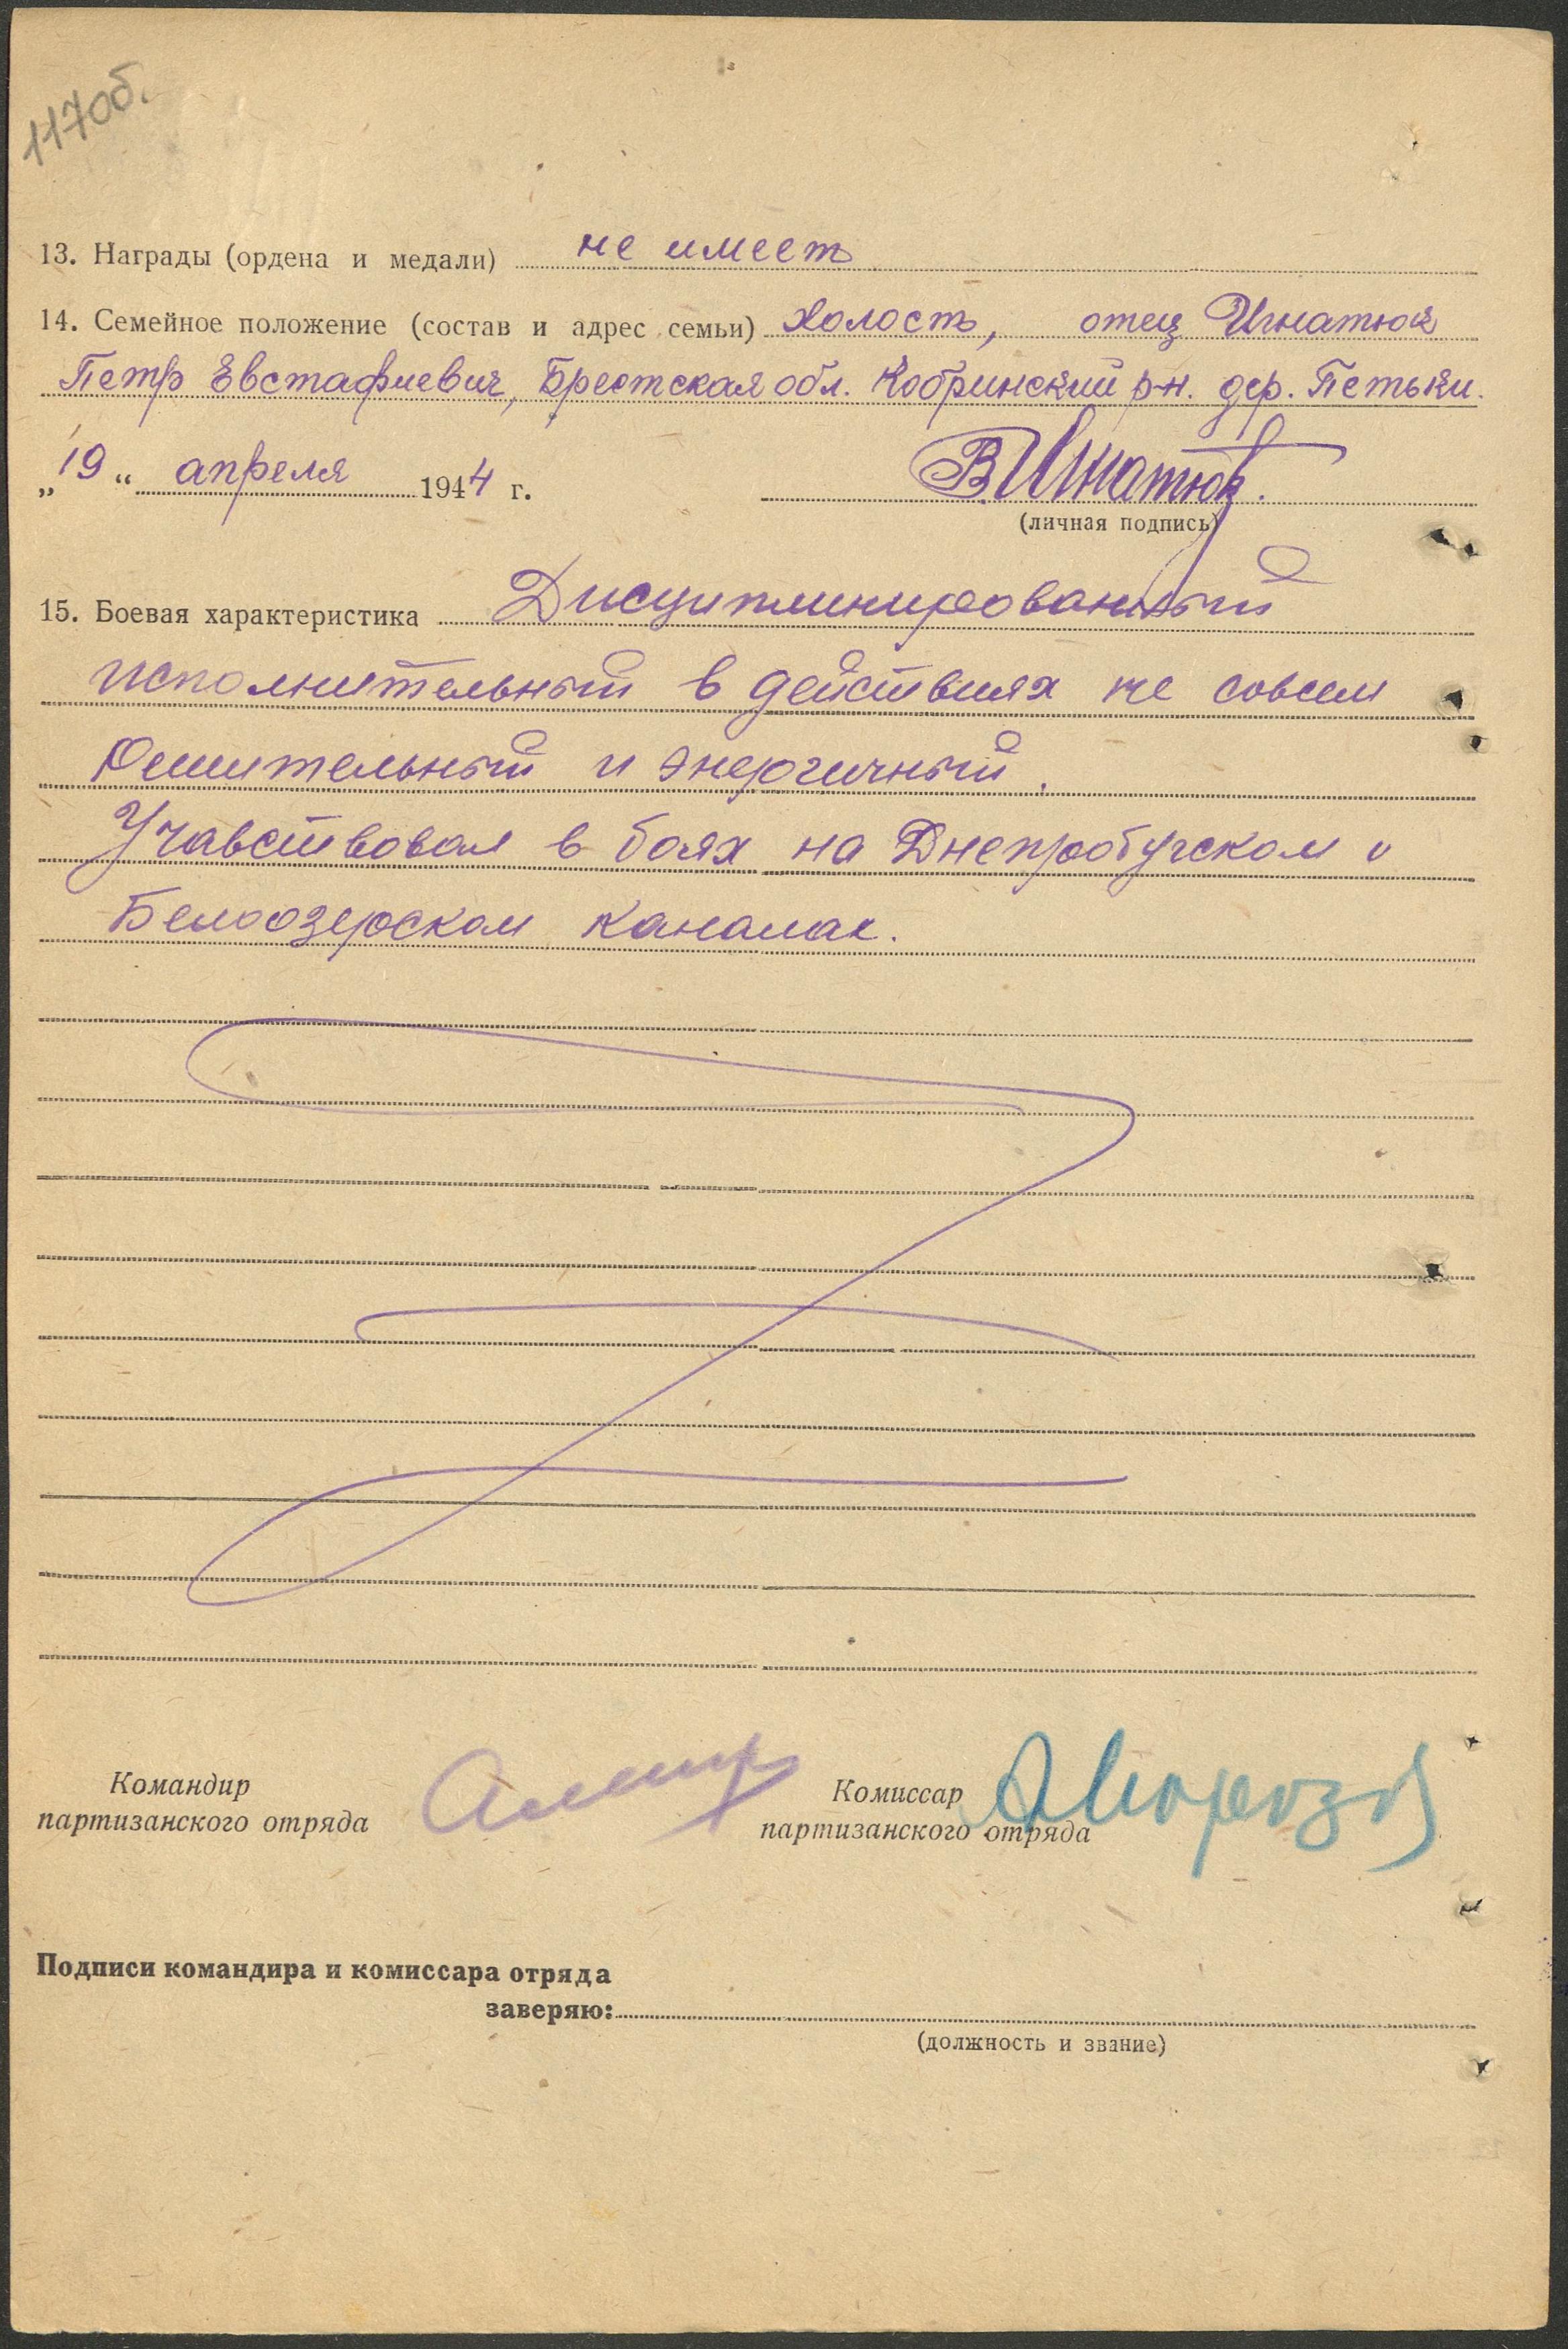 117об.
13. Награды (ордена и медали) не имеет
14. Семейное положение (состав и адрес семьи) Холость, отец Игнатюк
Петр Евстафиевич, Брестская обл. Кобринский р-н. дер. Петьки.
„19“ апреля 1944 г. В.Игнатюк.
(личная подпись)
15. Боевая характеристика Дисциплинированный
исполнительный в действиях не совсем
решительный и энергичный.
Учавствовал в боях на Днепробугском и
Белоозерском каналах.
Командир
партизанского отряда
Комиссар АМорозов
партизанского отряда
Подписи командира и комиссара отряда
заверяю:
(должность и звание)